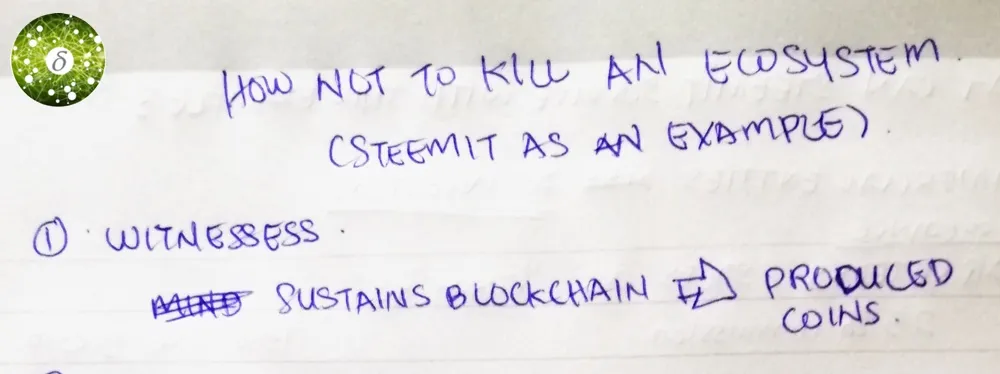 δ
HOW NOT TO KILL AN ECOSYSTEM.
(STEEMIT AS AN EXAMPLE).
① WITNESSESS.
SUSTAINS BLOCKCHAIN ⇨ PRODUCED
COINS.